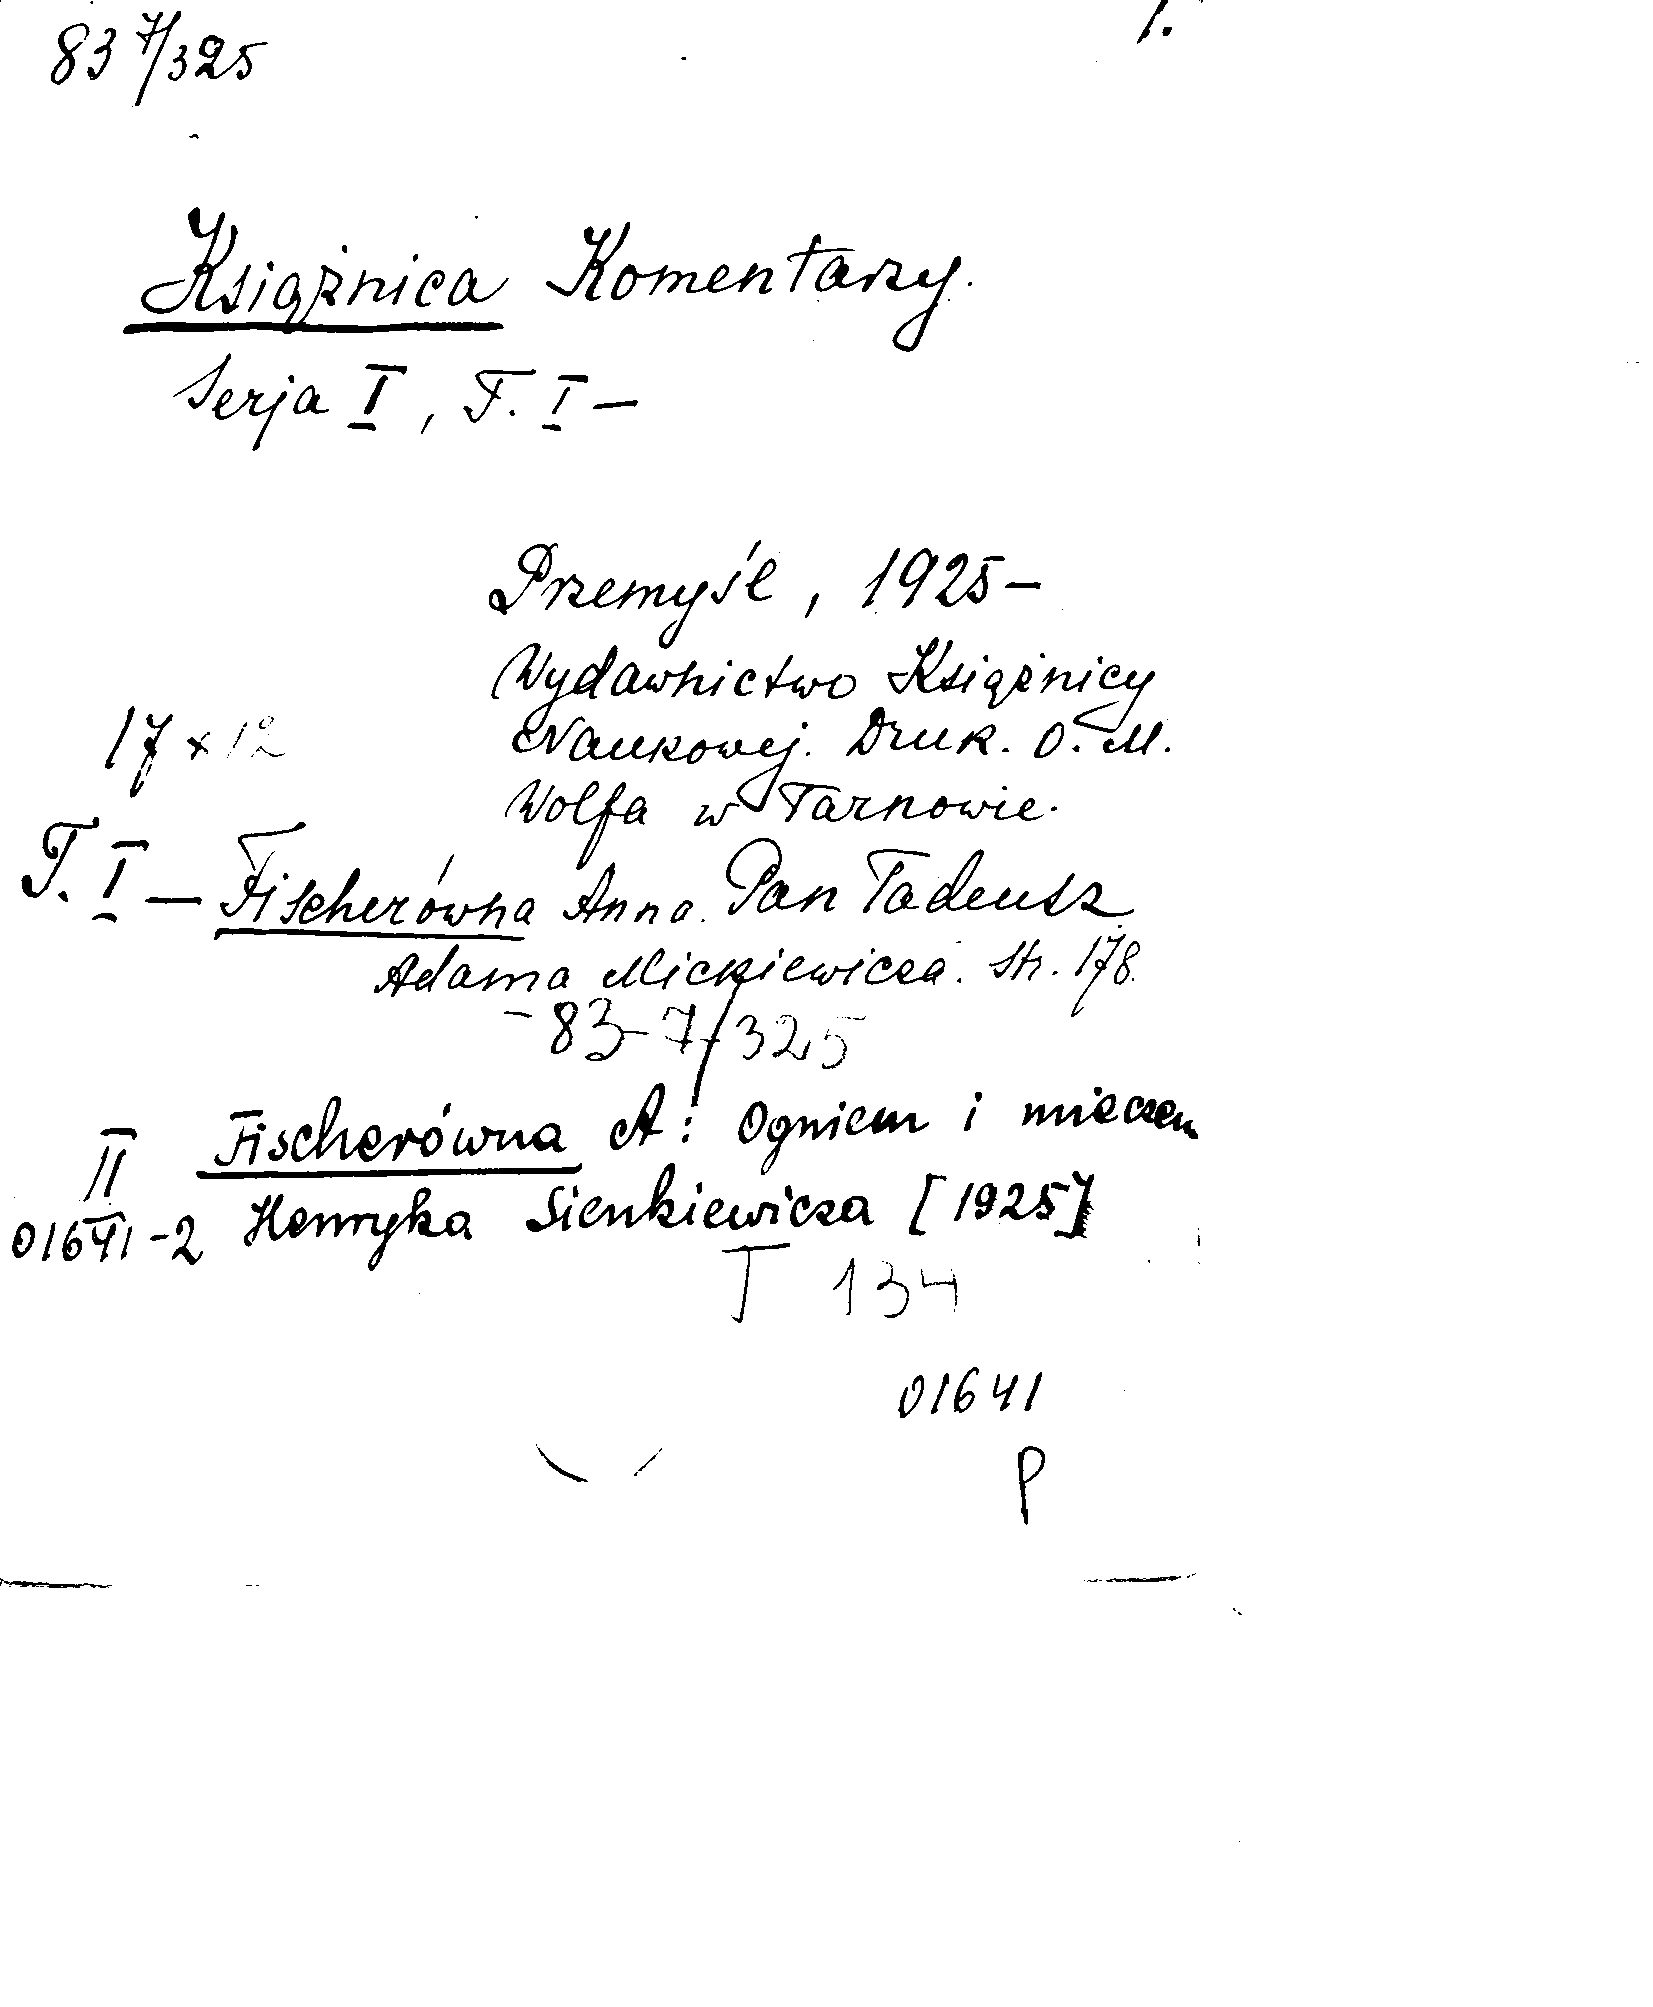 1.
83 7/325
Książnica Komentarzy.
Serja I, T. I –
Przemyśl, 1925 –
Wydawnictwo Książnicy
17 x 12 Naukowej. Druk. O. M.
Wolfa w Tarnowie.
T. I – Fischerówna Anna. Pan Tadeusz
Adama Mickiewicza. Str. 178.
– 83-7/325
II Fischerówna A: Ogniem i mieczem
01641-2 Henryka Sienkiewicza [1925]
T 134
01641
P